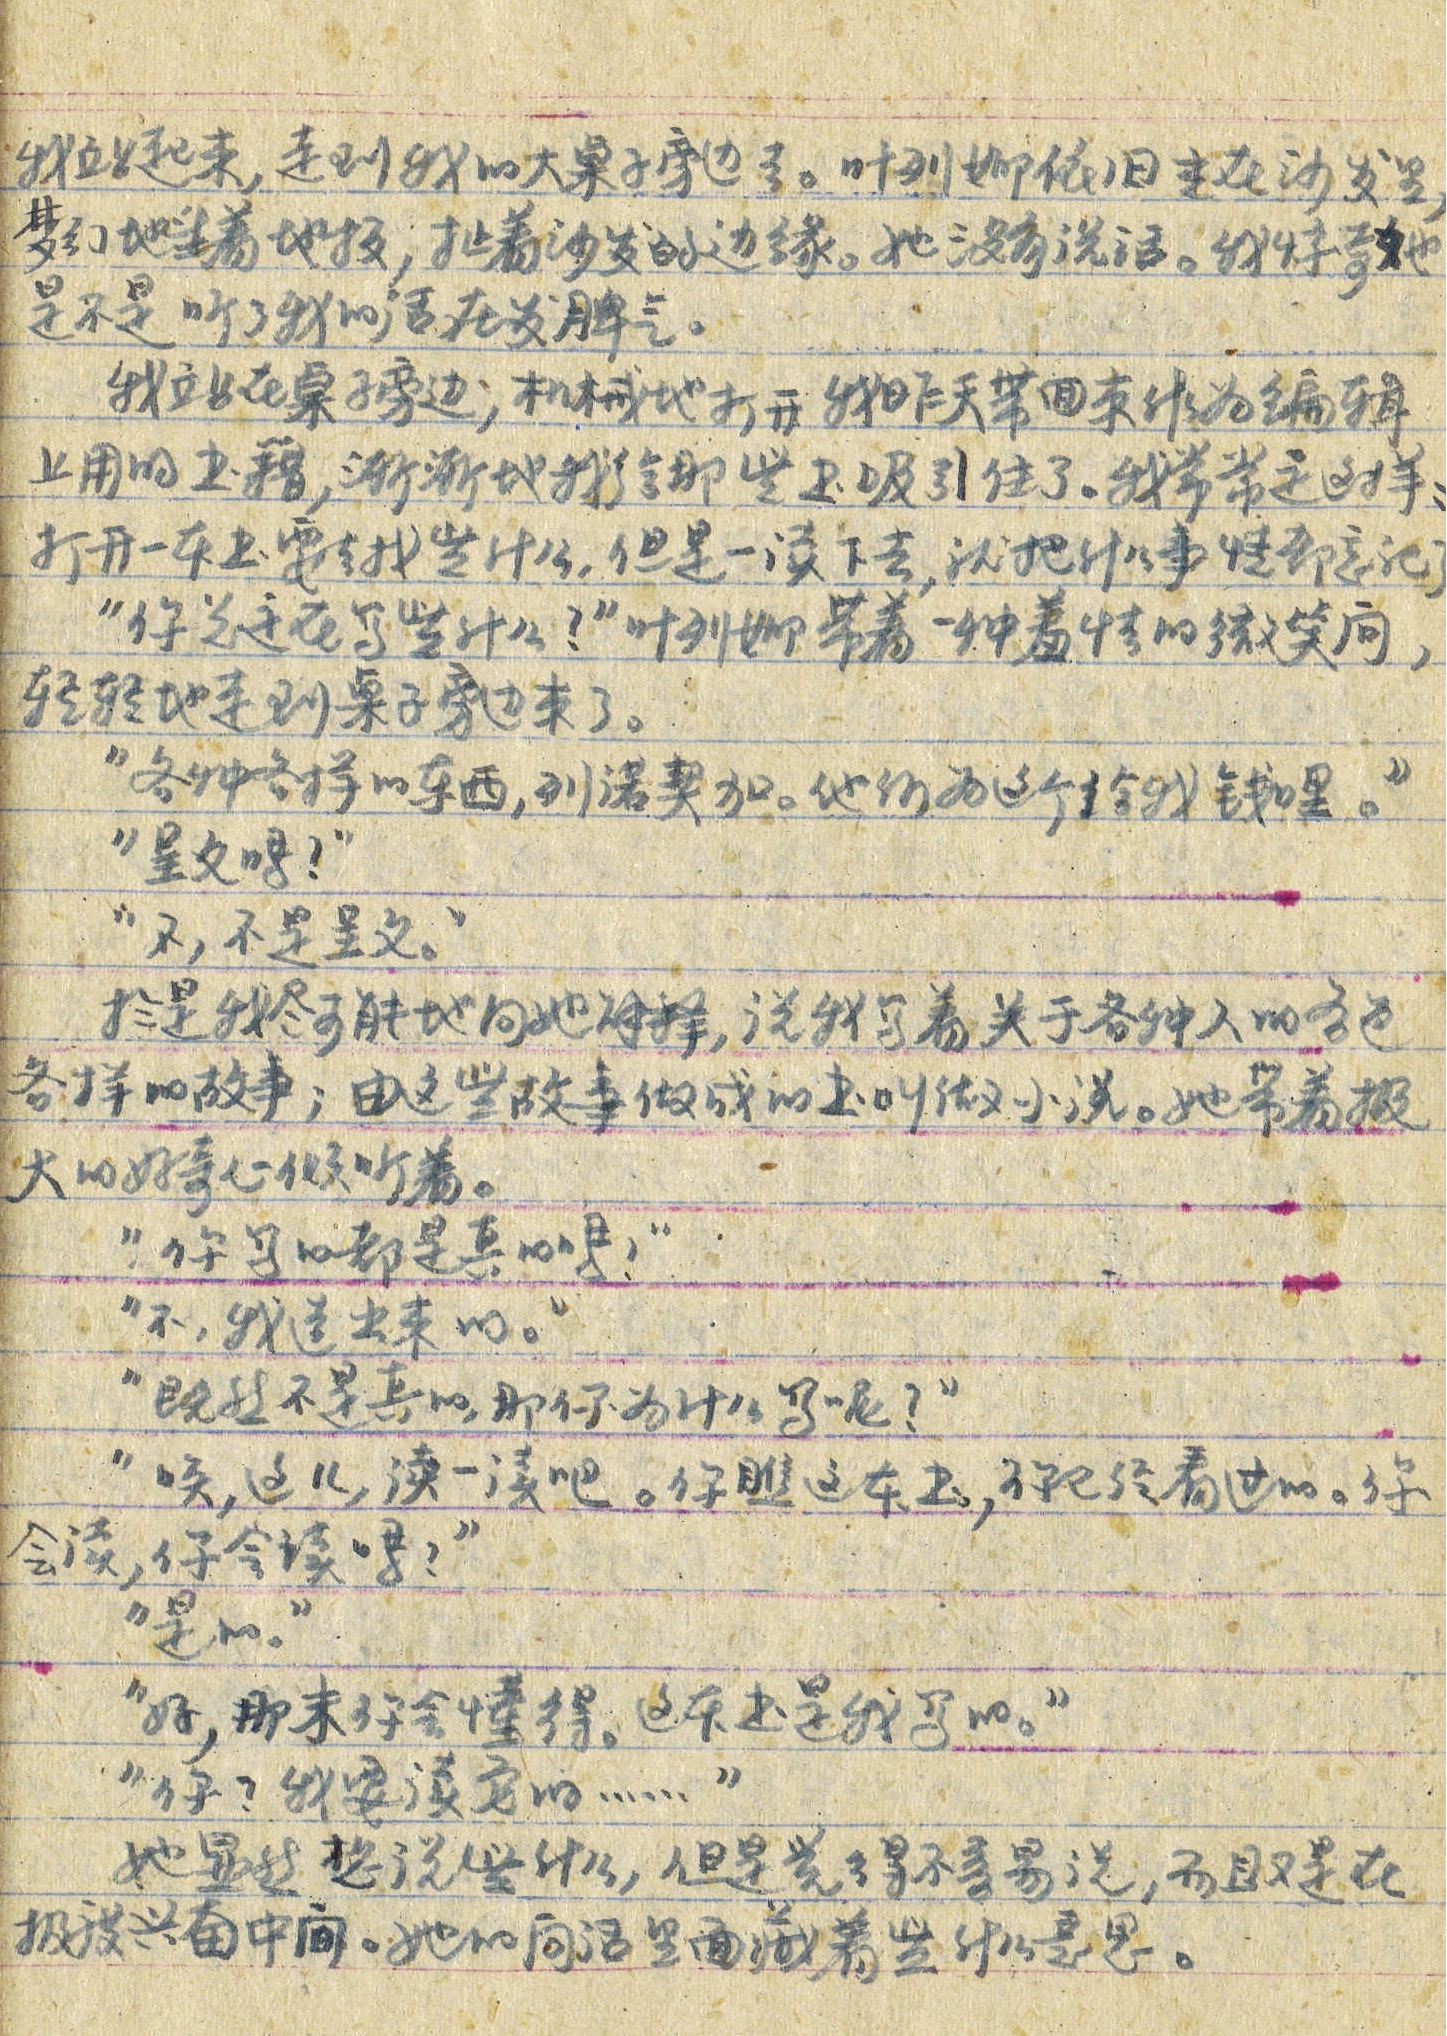 我站起来，走到我的大桌子旁边去。叶列娜依旧坐在沙发里，
梦幻地望着地板，扯着沙发的边缘。她没有说话。我怀疑她
是不是听了我的话在发脾气。
我站在桌子旁边，机械地打开我昨天带回来作为编辑
上用的书籍，渐渐地我给那些书吸引住了。我常常是这样：
打开一本书要找些什么，但是一读下去，就把什么事情都忘记了
“你总是在写些什么？”叶列娜带着一种羞怯的微笑问，
轻轻地走到桌子旁边来了。
“各种各样的东西，列诺契加。他们为这个给我钱哩。”
“呈文吗？”
“不，不是呈文。”
于是我尽可能地向她解释，说我写着关于各种人的各色
各样的故事；由这些故事做成的书叫做小说。她带着极
大的好奇心倾听着。
“你写的都是真的吗？”
“不，我造出来的。”
“既然不是真的，那你为什么写呢？”
“唉，这儿，读一读吧。你瞧这本书，你已经看过的。你
会读，你会读吗？”
“是的。”
“好，那末你会懂得。这本书是我写的。”
“你？我要读它的……”
她显然想说些什么，但是觉得不容易说，而且又是在
极形兴奋中间。她的问话里面藏着些什么意思。